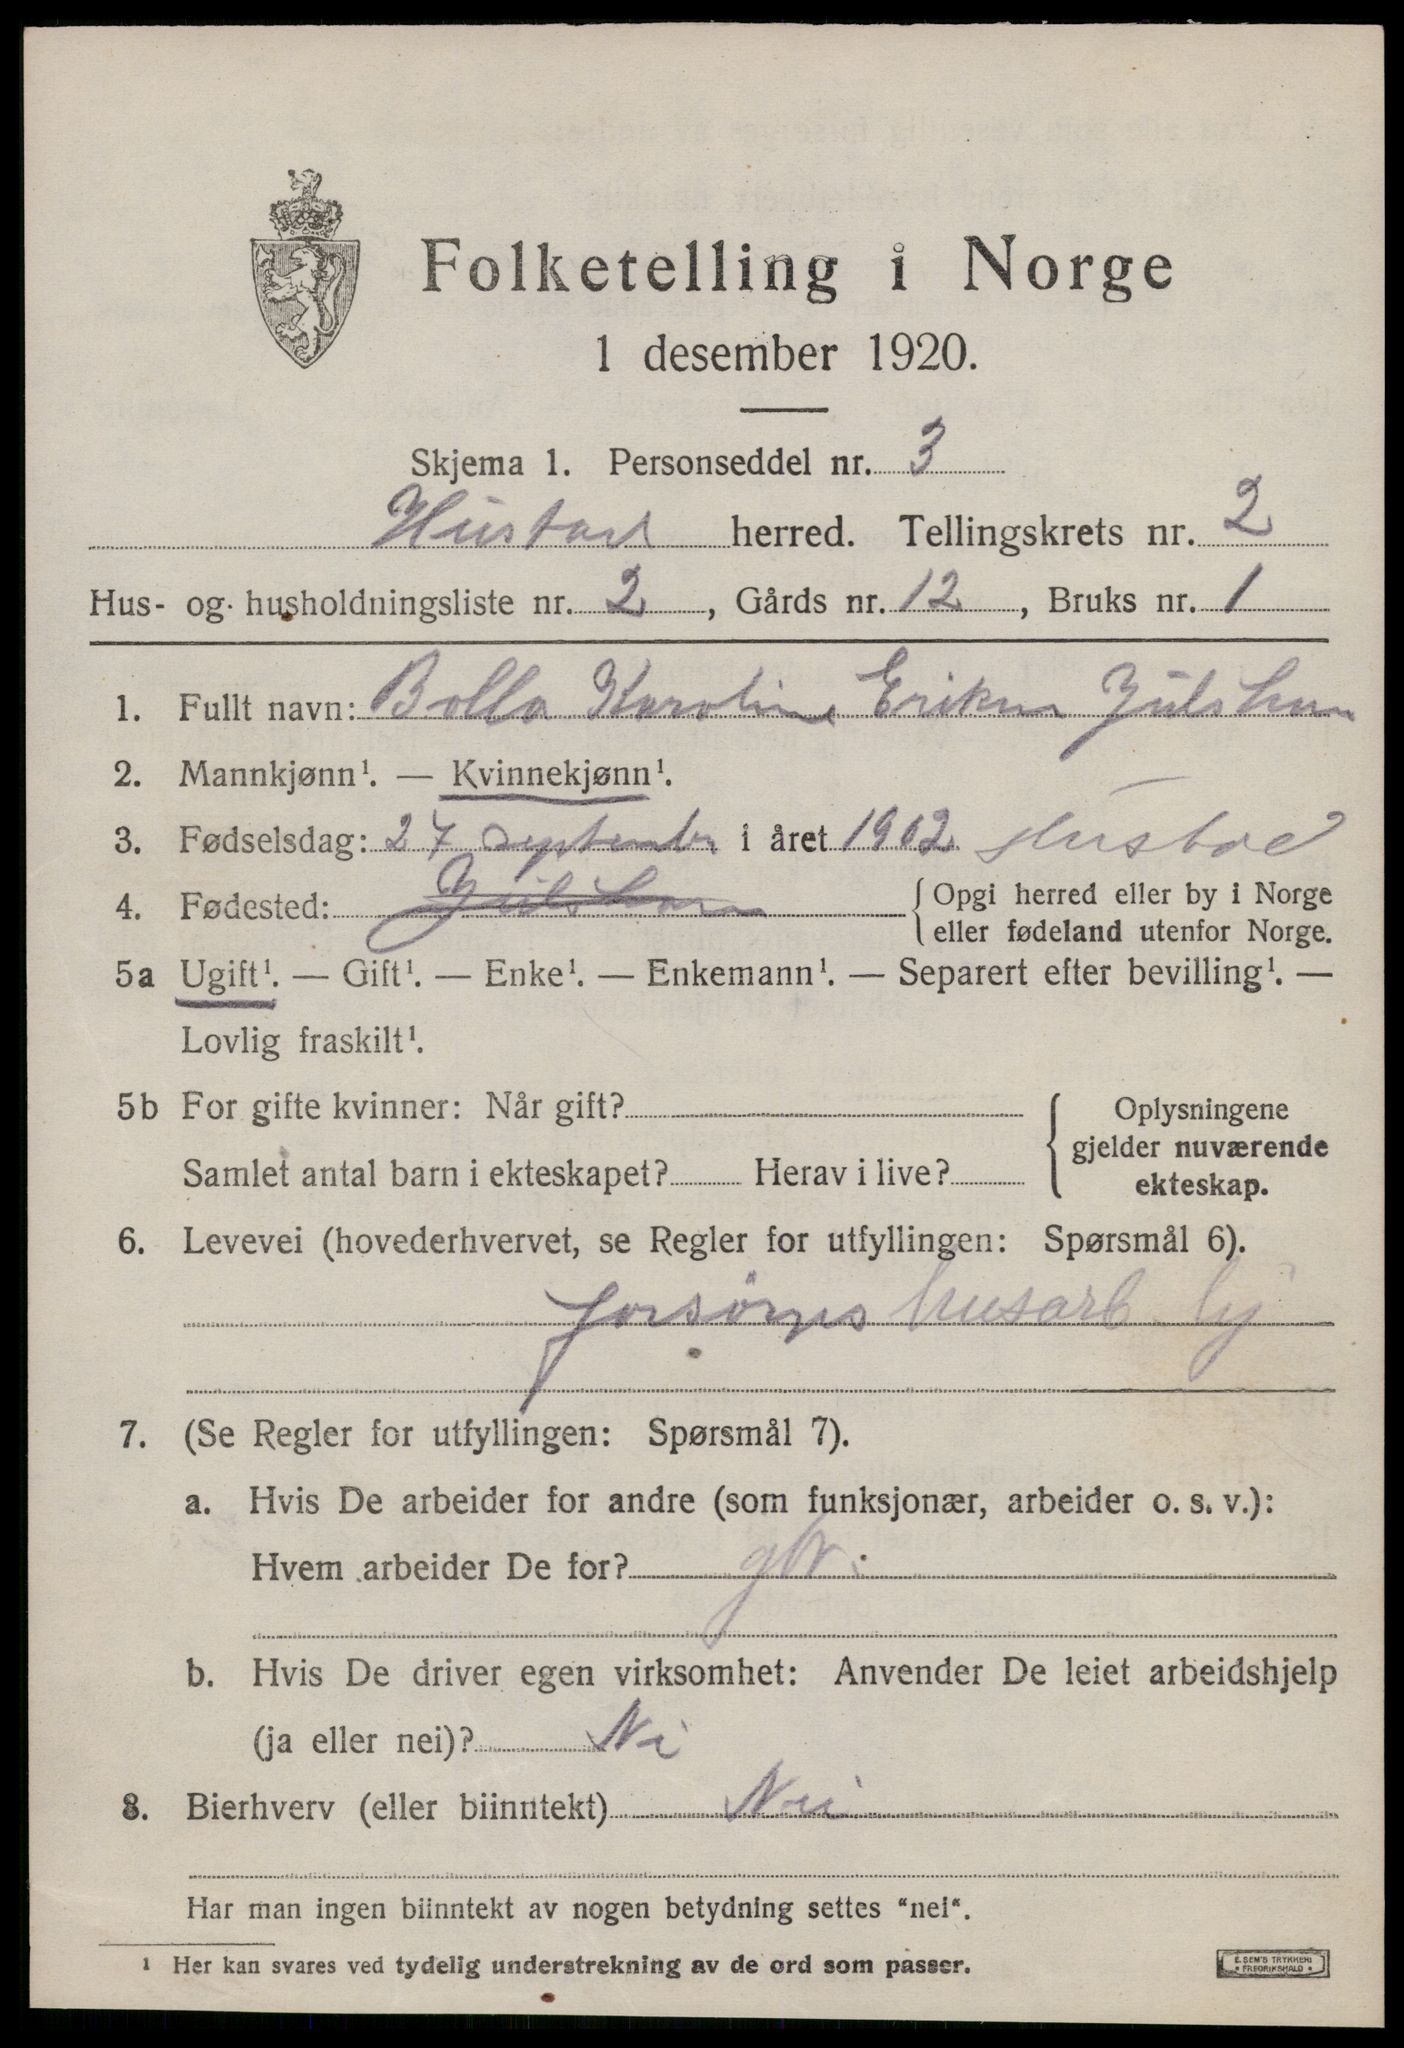 Folketelling i Norge
1 desember 1920.
Skjema 1. Personseddel nr. 3
Hustad herred. Tellingskrets nr. 2
Hus- og husholdningsliste nr. 2, Gårds nr. 12, Bruks nr. 1
1. Fullt navn: Bolla Karoline Julshamn
2. Mannkjønn¹. — Kvinnekjønn¹.
3. Fødselsdag: 27 september i året 1902 Hustad
4. Fødested: Julshamn { Opgi herred eller by i Norge
eller fødeland utenfor Norge.
5a Ugift¹. — Gift¹. — Enke¹. — Enkemann¹. — Separert efter bevilling¹. —
Lovlig fraskilt¹.
5b For gifte kvinner: Når gift? { Oplysningene
gjelder nuværende
Samlet antal barn i ekteskapet? Herav i live?
ekteskap.
6. Levevei (hovederhvervet, se Regler for utfyllingen: Spørsmål 6).
forsörges husarb.
7. (Se Regler for utfyllingen: Spørsmål 7).
a. Hvis De arbeider for andre (som funksjonær, arbeider o. s. v.):
Hvem arbeider De for?
b. Hvis De driver egen virksomhet: Anvender De leiet arbeidshjelp
(ja eller nei)? Nei
8. Bierhverv (eller biinntekt) Nei
Har man ingen biinntekt av nogen betydning settes "nei".
¹ Her kan svares ved tydelig understrekning av de ord som passer.
E. SEM'S TRYKKERI
• FREDRIKSHALD •